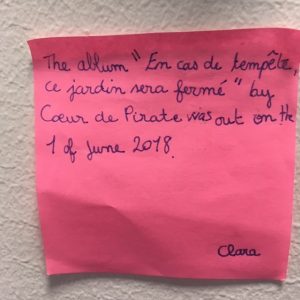 The album "En cas de tempête,
ce jardin sera fermé" by
Cœur de Pirate was out on the
1 of June 2018.
Clara